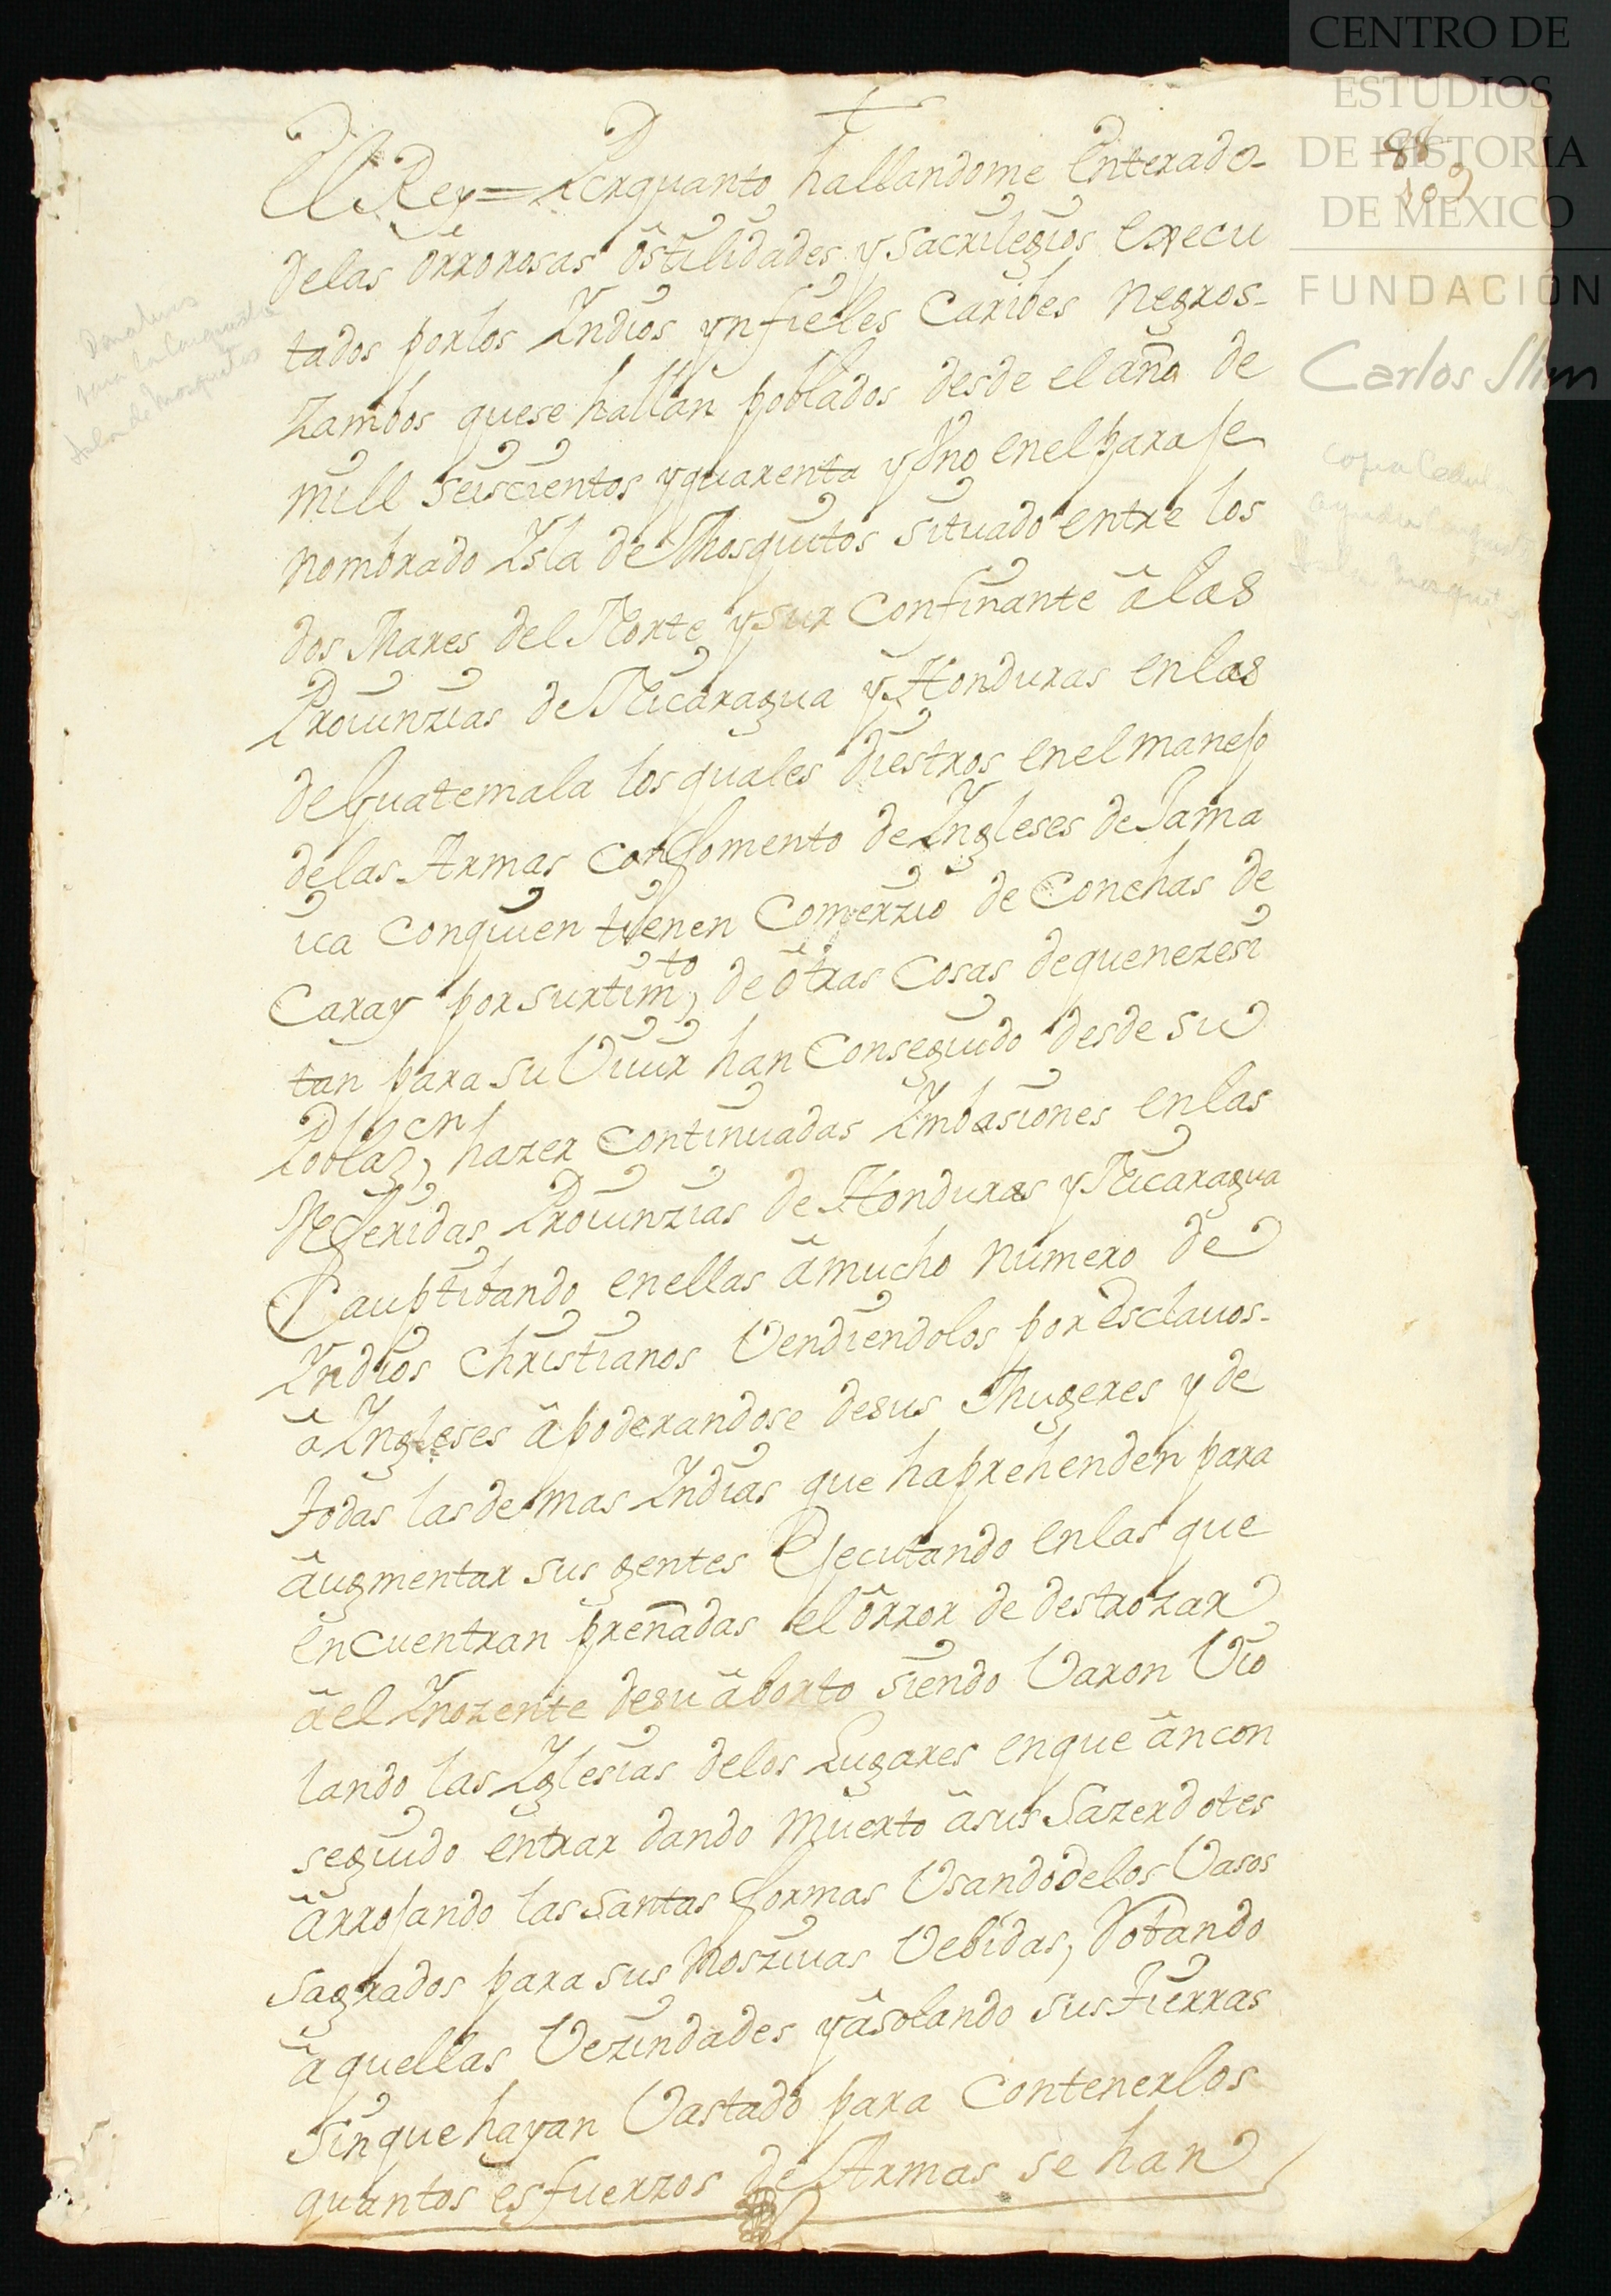 CENTRO DE
ESTUDIOS
DE HISTORIA
DE MEXICO
FUNDACIÓN
Carlos Slim
88
109
El Rey = Porquanto hallandome Enterado-
delas ôrrorosas ôstilidades y Sacrilegios Execu
tados por los Yndios ynfieles Carives Negros-
Zambos quese hallan poblados desde el año de
mill seiscientos y quarenta y Vno enel paraje
nombrado Ysla de Mosquitos situado entre los
dos Mares del Norte y sur Confinante â las
Prouinzias de Nicaragua y Honduras en las
de Guatemala los quales diestros enel manejo
de las Armas con fomento de Yngleses de Jama
ica con quien tienen Comerzio de Conchas de
Caray por surtimto, de ôtras Cosas de que nezesi
tan para su Viuir han Conseguido desde su
Poblazcn, hazer continuadas Ymbasiones en las
Referidas Prouinzias de Honduras y Nicaragua
Cauptibando en ellas â mucho numero de
Yndios Christianos Vendiendolos por Esclauos-
â Yngleses âpoderandose desus Mugeres y de
todas las de mas Yndias que haprehenden para
âugmentar sus gentes Ejecutando en las que
encuentran preñadas el ôrror de destrozar
â el Ynozente desu âborto siendo Varon Vio
lando las Yglesias delos Lugares en que ân con
seguido entrar dando muerto â sus Sazerdotes
ârrojando las santas formas Vsando delos Vasos
sagrados para sus Noszivas Vebidas, Robando
âquellas Vezindades y âsolando sus tierras
sin que hayan Vastado para Contenerlos
quantos esfuerzos de Armas se han